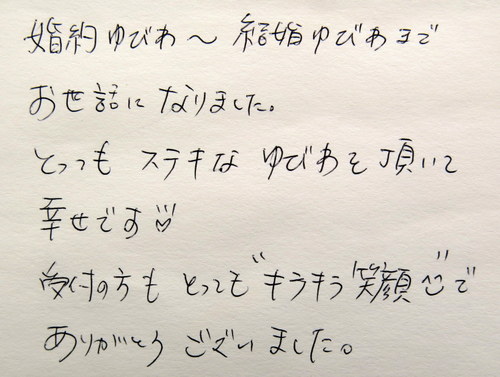 婚約ゆびわ〜結婚ゆびわまで
お世話になりました。
とってもステキなゆびわを頂いて
幸せです♡
受付の方もとっても"キラキラ笑顔☺"で
ありがとうございました。